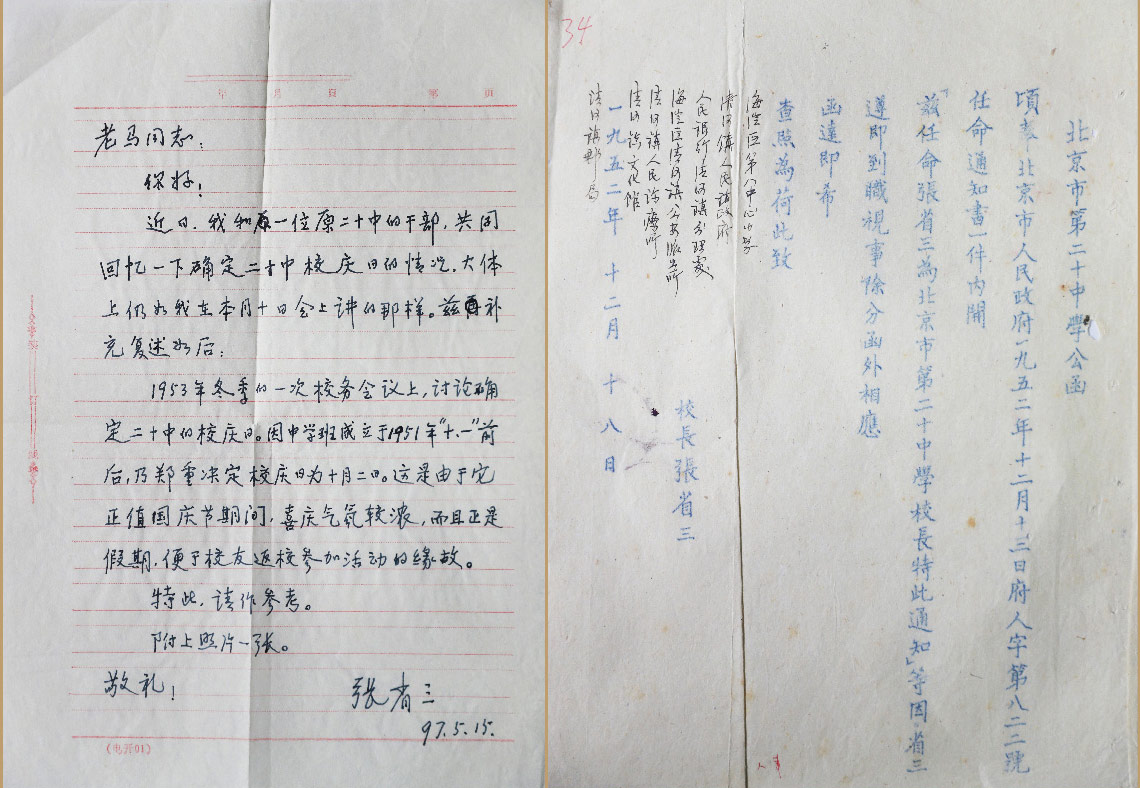 年 月 日 第 页
老马同志：
你好！
近日，我和一位原二十中的干部，共同
回忆一下确定二十中校庆日的情况，大体
上仍如我在本月十日会上讲的那样。兹再补
充复述如后：
1953年冬季的一次校务会议上，讨论确
定二十中的校庆日。因中学班成立于1951年“十.一”前
后，乃郑重决定校庆日为十月二日。这是由于它
正值国庆节期间，喜庆气氛较浓，而且正是
假期，便于校友返校参加活动的缘故。
特此，请作参考。
附上照片一张。
敬礼！
张省三
97.5.15.
（电开01）
34
北京市第二十中學公函
頃奉北京市人民政府一九五二年十二月十三日府人字第八二二號
任命通知書一件内開
「兹任命張省三為北京市第二十中學校長特此通知」等因省三
遵即到職視事除分函外相應
函達即希
查照為荷此致
海淀区第八中心小学
清河镇人民政府
人民银行清河镇办理处
海淀区清河镇公安派出所
清河镇人民診療所
清河镇文化馆
清河镇邮局
校長張省三
一九五二年十二月十八日
人事